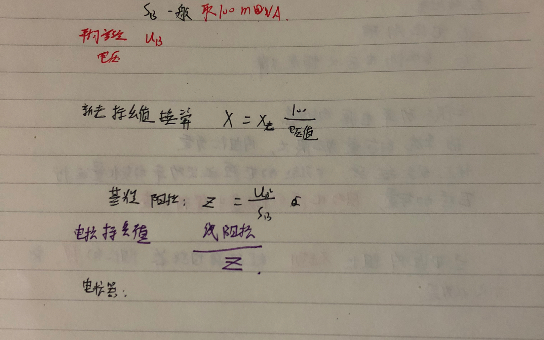 S_B 一般 取100 mVA.
平均额定 U_B
电压
标幺值 换算 X = X \frac{100}{值}
基准 阻抗: Z = \frac{U_B^2}{S_B}
电抗标幺值 \frac{线阻抗}{Z}.
电抗器: